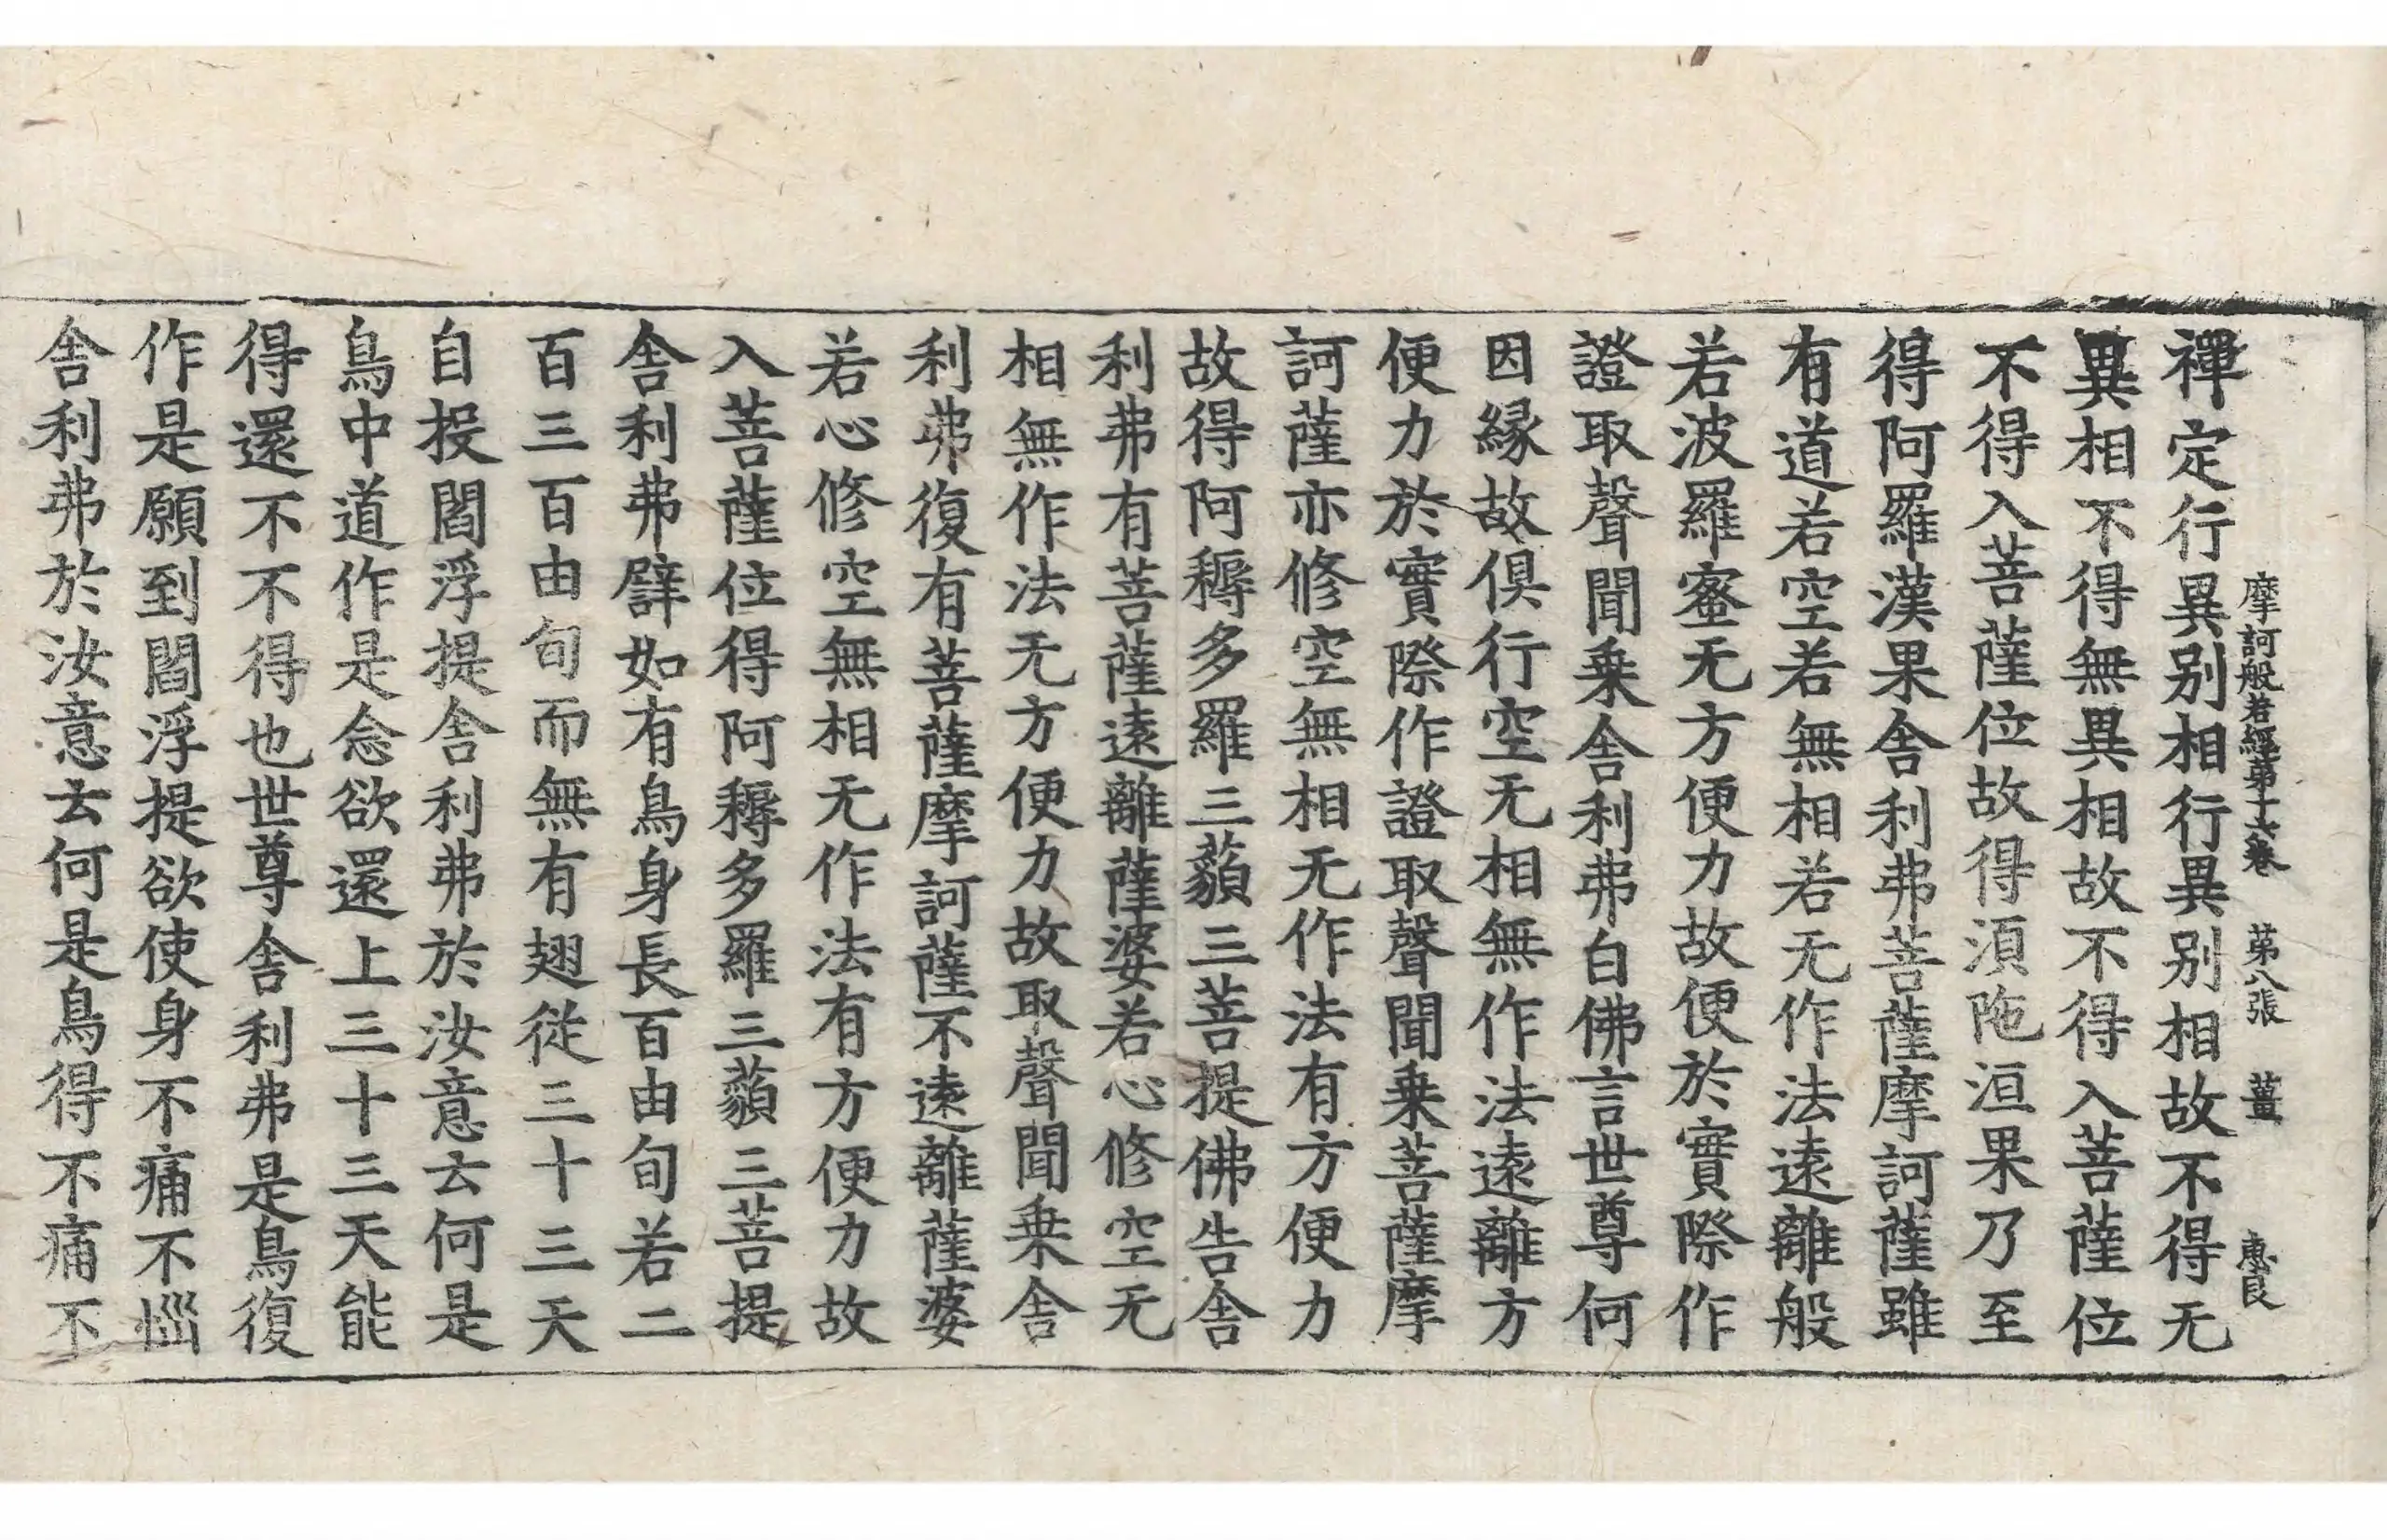 摩訶般若經第十六卷 第八張 薑 惠良
禪定行異別相行異別相故不得无
異相不得無異相故不得入菩薩位
不得入菩薩位故得湏陁洹果乃至
得阿羅漢果舎利弗菩薩摩訶薩雖
有道若空若無相若无作法逺離般
若波羅蜜无方便力故便於實際作
證取聲聞乗舎利弗白佛言世尊何
因縁故俱行空无相無作法逺離方
便力於實際作證取聲聞乗菩薩摩
訶薩亦修空無相无作法有方便力
故得阿耨多羅三藐三菩提佛告舎
利弗有菩薩逺離薩婆若心修空无
相無作法无方便力故取聲聞乗舎
利弗復有菩薩摩訶薩不逺離薩婆
若心修空無相无作法有方便力故
入菩薩位得阿耨多羅三藐三菩提
舎利弗譬如有鳥身長百由旬若二
百三百由旬而無有翅從三十三天
自投閻浮提舎利弗於汝意云何是
鳥中道作是念欲還上三十三天能
得還不不得也世尊舎利弗是鳥復
作是願到閻浮提欲使身不痛不惱
舎利弗於汝意云何是鳥得不痛不